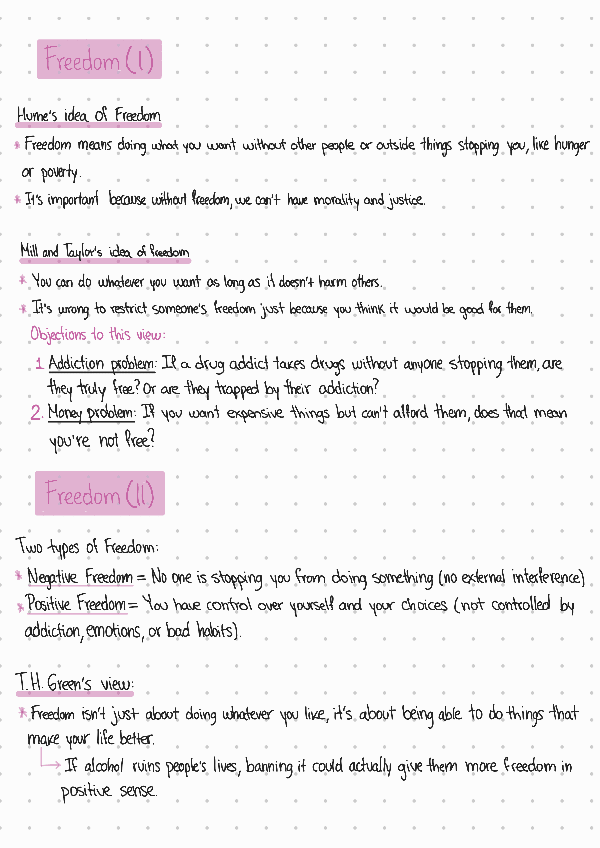 Freedom (I)
Hume's idea of Freedom
* Freedom means doing what you want without other people or outside things stopping you, like hunger
or poverty.
* It's important because without freedom, we can't have morality and justice.
Mill and Taylor's idea of freedom
* You can do whatever you want as long as it doesn't harm others.
* It's wrong to restrict someone's freedom just because you think it would be good for them.
Objections to this view:
1 Addiction problem: If a drug addict takes drugs without anyone stopping them, are
they truly free? Or are they trapped by their addiction?
2. Money problem: If you want expensive things but can't afford them, does that mean
you're not free?
Freedom (II)
Two types of Freedom:
* Negative Freedom = No one is stopping you from doing something (no external interference)
* Positive Freedom = You have control over yourself and your choices (not controlled by
addiction, emotions, or bad habits).
T.H. Green's view:
* Freedom isn't just about doing whatever you like, it's about being able to do things that
make your life better.
→ If alcohol ruins people's lives, banning it could actually give them more freedom in
positive sense.